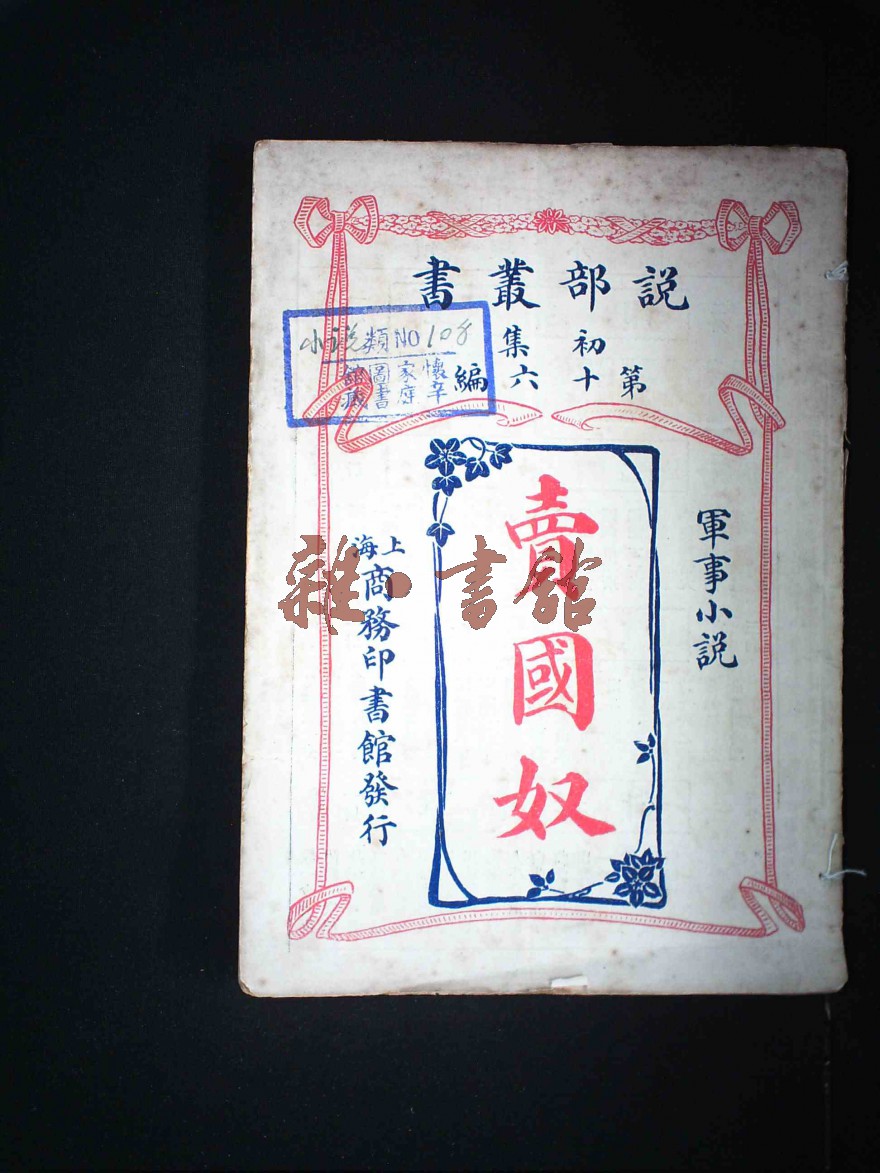 說部叢書
初集
第十六編
軍事小說
賣國奴
上海商務印書館發行
小说類NO 108
懷辛
家庭
圖書
館藏
雜·書館